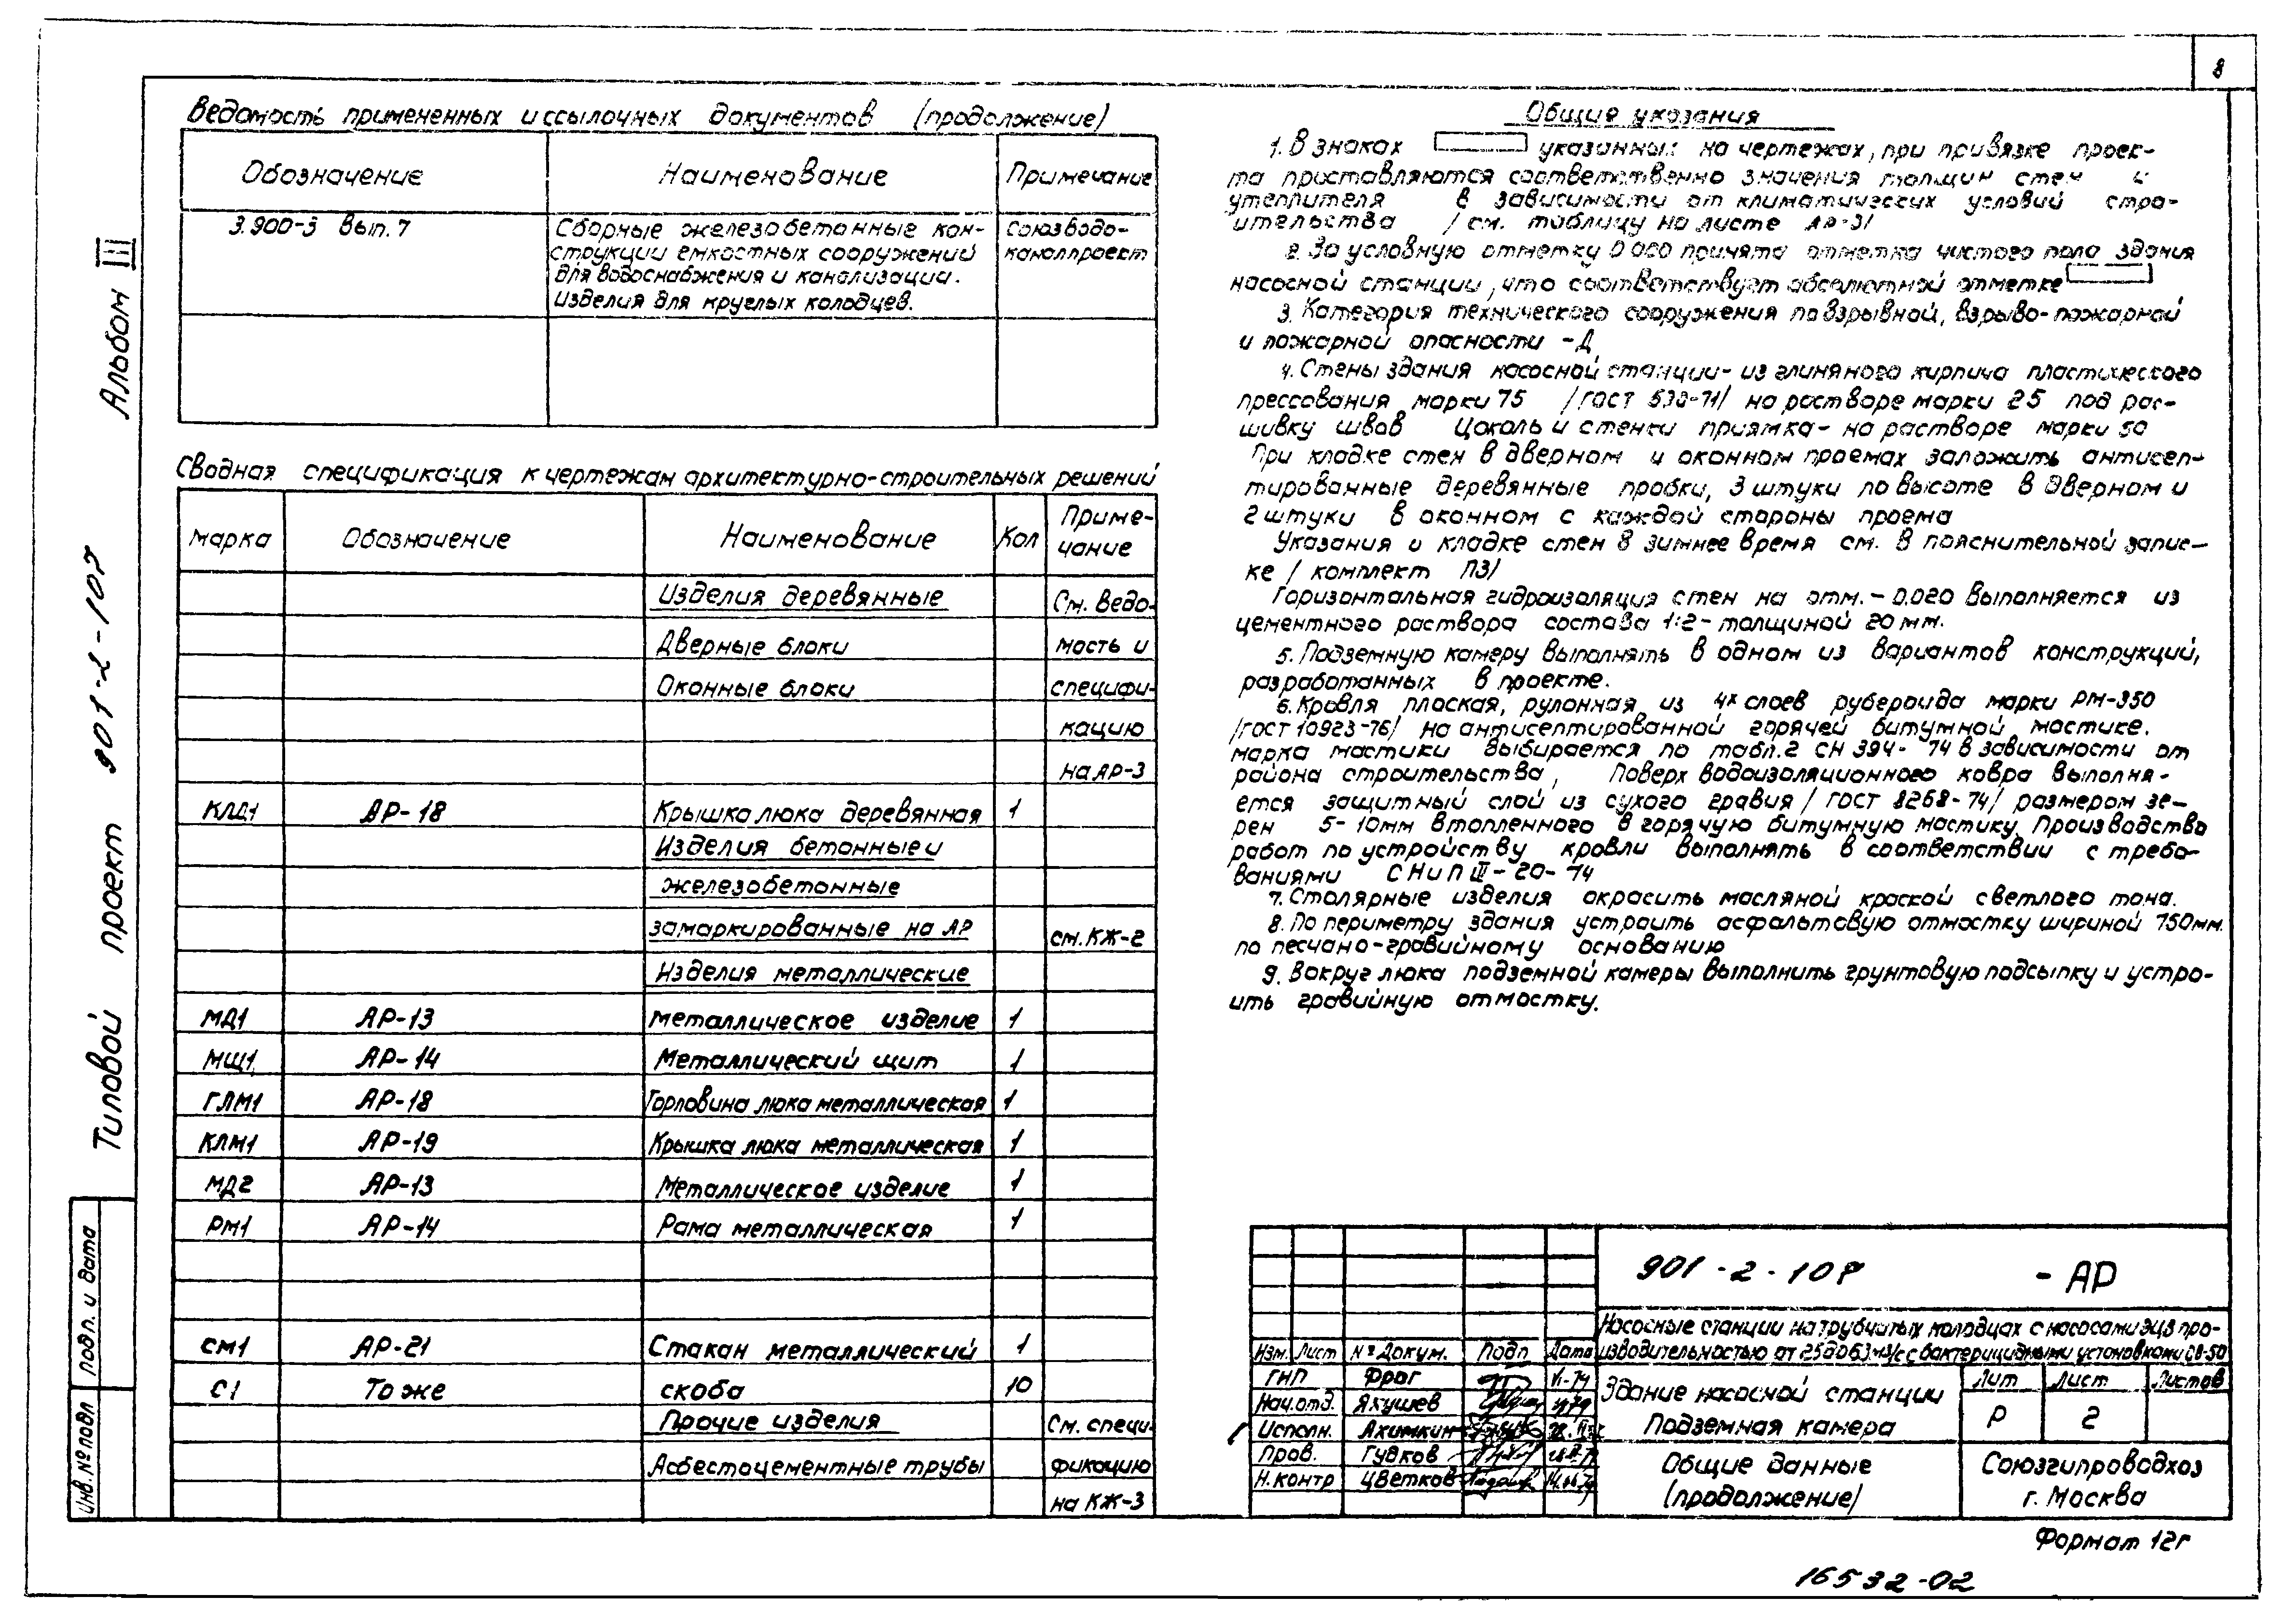 8
Альбом III
Типовой проект 901-2-107
Ведомость примененных и ссылочных документов (продолжение)
Обозначение Наименование Примечание
3.900-3 Вып. 7 Сборные железобетонные кон- Союзводо-
струкции емкостных сооружений каналпроект
для водоснабжения и канализации.
Изделия для круглых колодцев.
Сводная спецификация к чертежам архитектурно-строительных решений
Марка Обозначение Наименование Кол Приме-
чание
Изделия деревянные См. Ведо-
Дверные блоки мость и
Оконные блоки специфи-
кацию
на АР-3
КЛД1 АР-18 Крышка люка деревянная 1
Изделия бетонные и
железобетонные
замаркированные на АР см. КЖ-2
Изделия металлические
МД1 АР-13 Металлическое изделие 1
МЩ1 АР-14 Металлический щит 1
ГЛМ1 АР-18 Горловина люка металлическая 1
КЛМ1 АР-19 Крышка люка металлическая 1
МД2 АР-13 Металлическое изделие 1
РМ1 АР-14 Рама металлическая 1
СМ1 АР-21 Стакан металлический 1
С1 То же скоба 10
Прочие изделия См. специ-
Асбестоцементные трубы фикацию
на КЖ-3
Общие указания
1. В знаках указанных на чертежах, при привязке проек-
та проставляются соответственно значения толщин стен и
утеплителя в зависимости от климатических условий стро-
ительства / см. таблицу на листе АР-3/
2. За условную отметку 0.000 принята отметка чистого пола здания
насосной станции, что соответствует абсолютной отметке
3. Категория технического сооружения по взрывной, взрыво-пожарной
и пожарной опасности -Д
4. Стены здания насосной станции- из глиняного кирпича пластического
прессования марки 75 /ГОСТ 530-71/ на растворе марки 25 под рас-
шивку швов Цоколь и стенки приямка- на растворе марки 50
При кладке стен в дверном и оконном проемах заложить антисеп-
тированные деревянные пробки, 3 штуки по высоте в дверном и
2 штуки в оконном с каждой стороны проема
Указания о кладке стен в зимнее время см. в пояснительной запис-
ке / комплект ПЗ/
Горизонтальная гидроизоляция стен на отм. - 0.020 выполняется из
цементного раствора состава 1:2- толщиной 20 мм.
5. Подземную камеру выполнять в одном из вариантов конструкций,
разработанных в проекте.
6. Кровля плоская, рулонная из 4х слоев рубероида марки РМ-350
/ГОСТ 10923-76/ на антисептированной горячей битумной мастике.
марка мастики выбирается по табл. 2 СН 394- 74 в зависимости от
района строительства, Поверх водоизоляционного ковра выполня-
ется защитный слой из сухого гравия / ГОСТ 8268-74/ размером зе-
рен 5-10мм втопленного в горячую битумную мастику. Производство
работ по устройству кровли выполнять в соответствии с требо-
ваниями СНиП III - 20-74
7. Столярные изделия окрасить масляной краской светлого тона.
8. По периметру здания устроить асфальтовую отмостку шириной 750мм.
по песчано-гравийному основанию
9. Вокруг люка подземной камеры выполнить грунтовую подсыпку и устро-
ить гравийную отмостку.
901-2-107 -АР
Насосные станции на трубчатых колодцах с насосами ЭЦВ про-
изводительностью от 25 до 63 м3/с с бактерицидными установками
Изм. Лист № Докум. Подп Дата
ГИП Фраг
Нач.отд. Яхушев
Исполн. Ахимкин
Пров. Гудков
Н.контр Цветков
Здание насосной станции
Подземная камера
Лит Лист Листов
Р 2
Общие данные
(продолжение)
Союзгипроводхоз
г. Москва
Инв. № подл Подп. и дата
Формат 12г
16532-02